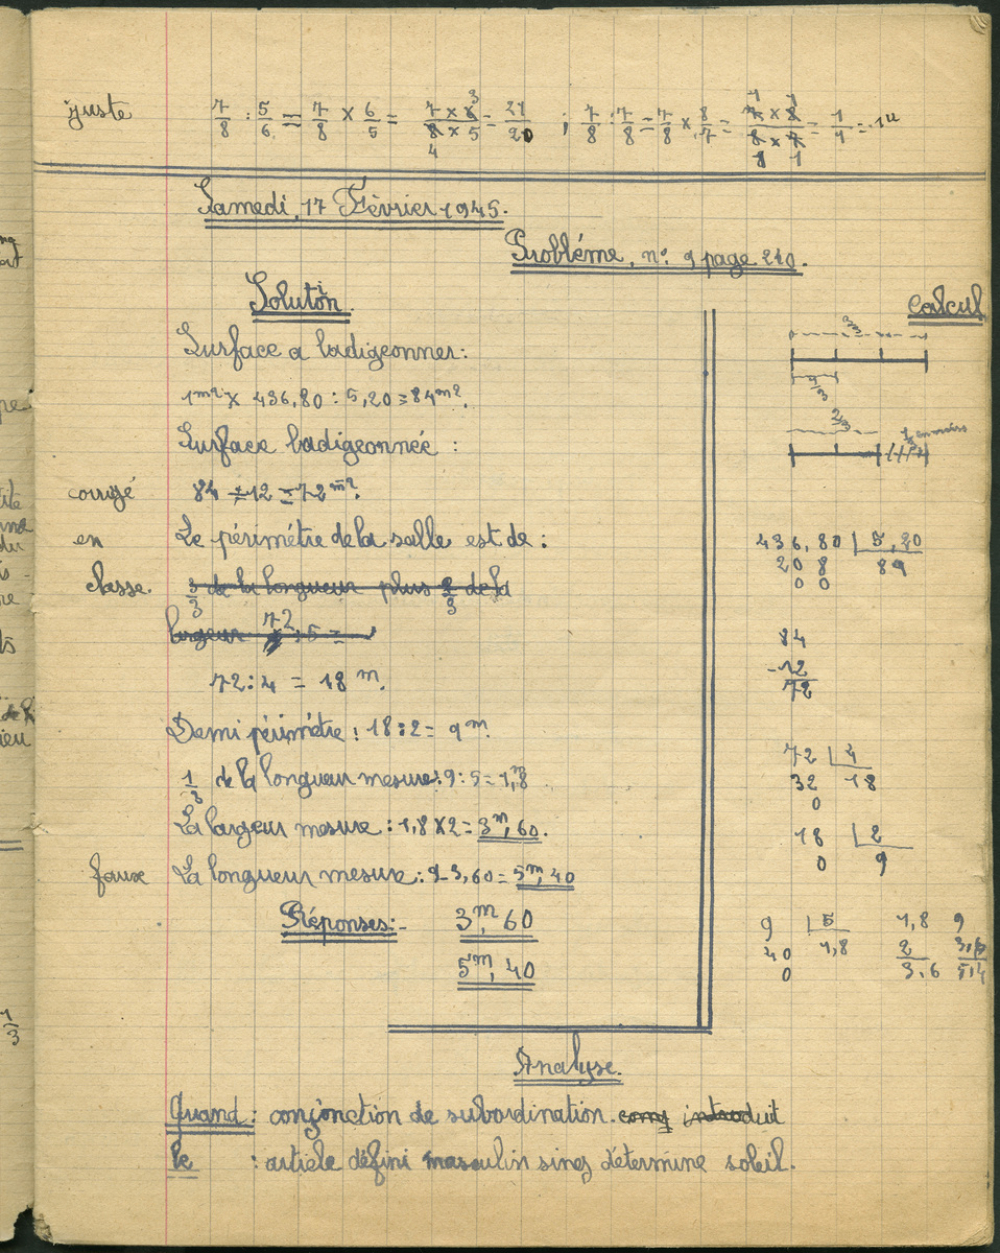 juste 7/8 : 5/6 = 7/8 × 6/5 = 7 × 6 3 / 8 × 5 4 = 21/20 ; 7/8 : 7/8 = 7/8 × 8/7 = 1 1 7 × 8 / 8 × 7 1 1 = 1/1 = 1
Samedi 17 Février 1945.
Probléme, n° 9 page 210.
Soluton i
Calcul
Surface a badigeonner:
1m² × 436,80 : 5,20 = 84m².
Surface badigeonnée :
2/3
1/3 en moins
corrigé 84 - 12 = 72 m².
en Le périmétre de la salle est de :
436,80 | 5,20
20 8 84
0 0
classe. 3/3 de la longueur plus 2/3 de la
largeur 72 : 5 =
84
-12
72
72 : 4 = 18 m.
Demi périmétre : 18 : 2 = 9 m.
72 | 4
32 18
0
1/3 de la longueur mesure : 9 : 5 = 1,m8
La largeur mesure : 1,8 × 2 = 3m,60.
18 | 2
0 9
faux La longueur mesure : 9 - 3,60 = 5m,40
Réponses:- 3m,60
9 | 5 1,8 9
40 1,8 2 3,6
0 3,6 5,4
5m,40
Analyse.
Quand : conjonction de subordination. conj introduit
le : article défini masculin sing détermine soleil.